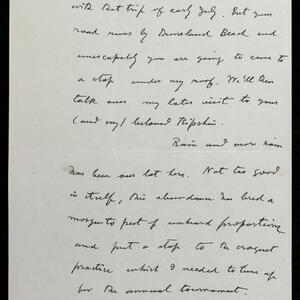 with that trip of early July. But your
road runs by Duneland Beach and
inescapably you are going to come to
a stop under my roof. We'll then
talk over my later visit to your
(and my) beloved Ripshin.
Rain and more rain
has been our lot here. Not too good
in itself, this abundance has bred a
mosquito pest of unheard proportions
and put a stop to the croquet
practice which I needed to tune up
for the annual tournament.